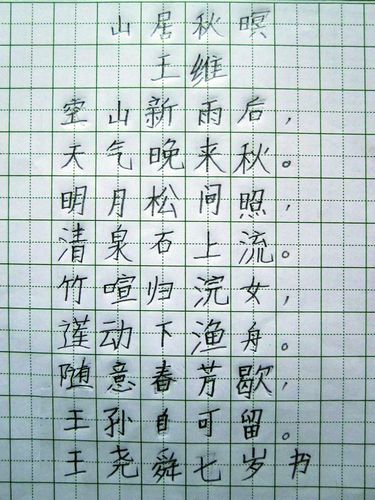 山居秋暝
王维
空山新雨后，
天气晚来秋。
明月松间照，
清泉石上流。
竹喧归浣女，
莲动下渔舟。
随意春芳歇，
王孙自可留。
王尧舜七岁书